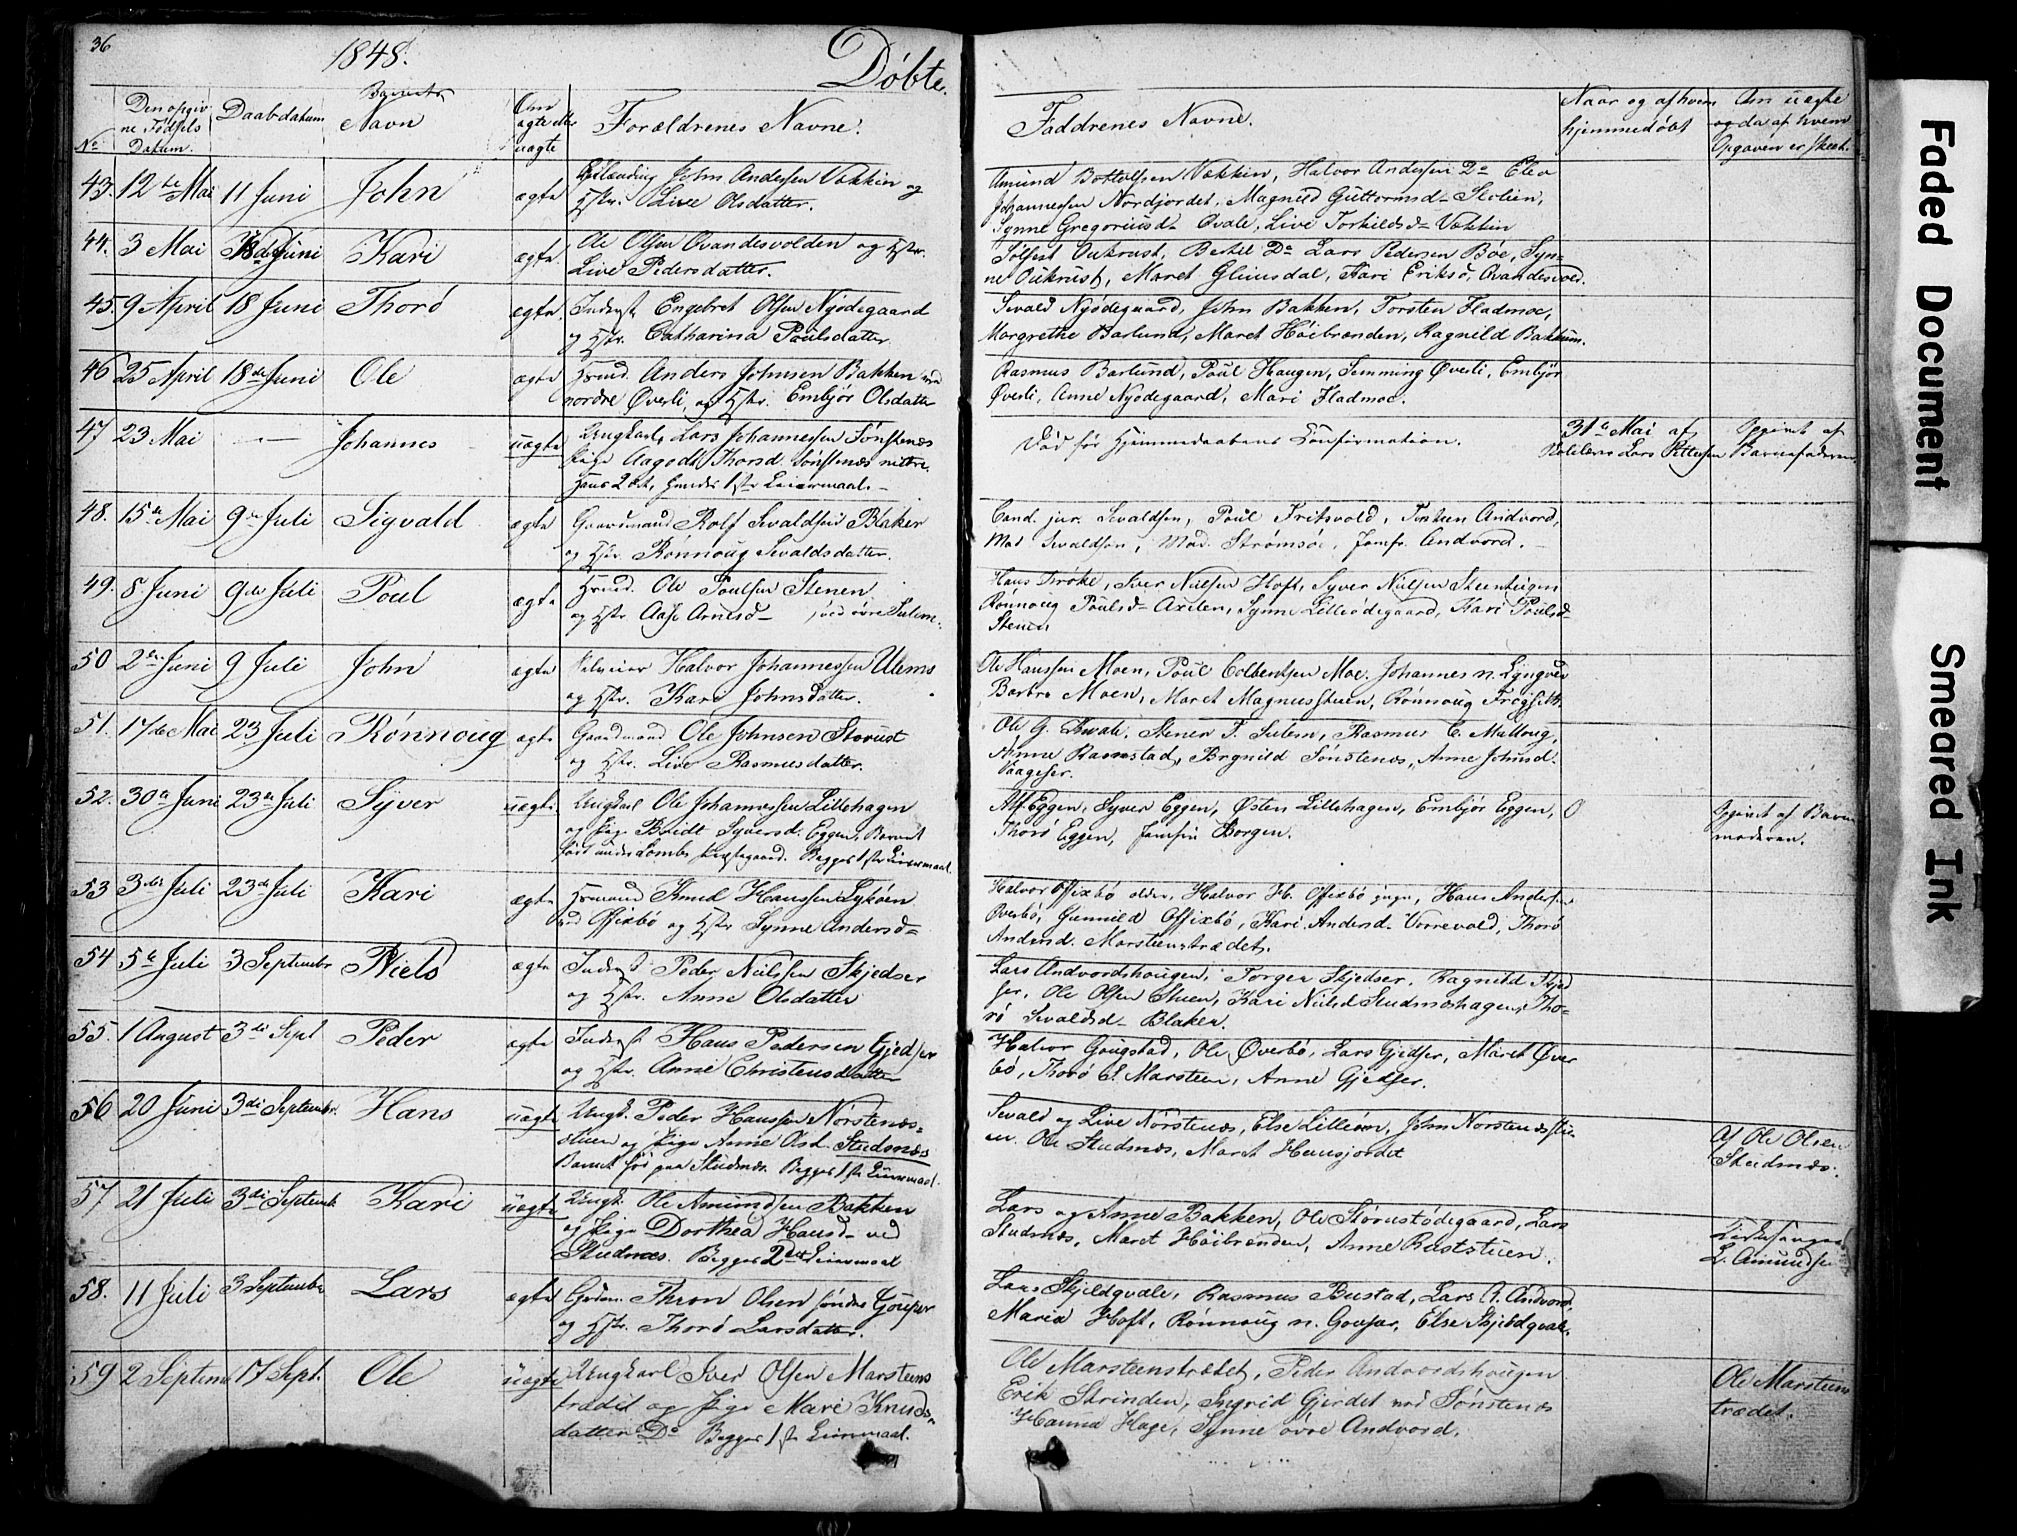 36
1848.
Døbte.
No
Den opgiv
ne Fødsels
Datum.
Daabdatum
Barnets
Navn
Om
ægte eller
uægte
Forældrenes Navne.
Faddrenes Navne.
Naar og af hvem
hjemmedøbt
Om uægte
og da af hvem
Opgaven er skeet.
43. 12te Mai 11 Juni John ægte John Andersen Vækkin og
Hstr. Live Olsdatter.
Amund Bottolfsen Vækkin, Halvor Andersen Do
Johannessen Nordjordet, Magnild Guttormsd- Stolien,
Synne Gregoriusd- Qvale, Live Torkildsd- Vækkin
44. 3 Mai Juni Kari ægte Ole Olsen Qvandesvolden og Hstr.
Live Pedersdatter.
Do Lars Pedersen Bøe, Syn-
ne Oukrust, Maret Gluusdal, Kari Eriksd, Qvandesvold.
45. 9 April 18 Juni Thorø ægte Inderst Engebret Olsen Nyødegaard
og Hstr. Catharina Poulsdatter
Sevald Nyødegaard, John Bakken, Torsten Fladmoe,
Margrethe Barlund, Maret Høibrænden, Ragnild Bakkum.
46 25 April 18de Juni Ole ægte Hsmd. Anders Johnsen Bakken ved
nordre Øverli, og Hstr. Embjør Olsdatter
Rasmus Barlund, Poul Haugen, Semming Øverli, Embjør
Øverli, Anne Nyødegaard, Mari Fladmoe.
47 23 Mai — Johannes uægte Ungkarl, Lars Johannessen Sønstenæs
Pige Aagodt Thorsd. Sønstenæs
hans 2det, hendes 1ste Leiermaal.
Død før Hjemmedaabens Confirmation.
31te Mai af
Lars Pettersen
Opgivet af
Barnefaderen.
48. 15de Mai 9de Juli Sigvald ægte Gaardmand Rolf Sevaldsen Blaker
og Hstr. Rønnoug Sevaldsdatter.
Cand. jur. Sevaldsen, Poul Fritsvold, Torsten Andvord,
Mad Sevaldsen, Mad. Strømsøe, Jomfr. Andvord.
49. 8 Juni 9de Juli Poul ægte Hsmd. Ole Poulsen Stenen
og Hstr Aase Arnesd- ved øvre Sulem.
Hans Iver Nielsen Hoft, Syver Nielsen Steenhugen
Rønnoug Poulsd- Synne Lilleødegaard, Kari Poulsd-
Stenen
50 2den Juni 9 Juli John ægte Halvor Johannessen Ulems
og Hstr. Kari Johnsdatter.
Ole Hanssen Moen, Poul Colbentsen Moe. Johannes n. Lyngved
Barbro Moen, Maret Magnussteen, Rønnoug Frøgseth.
51. 17de Mai 23 Juli Rønnoug ægte Gaardmand Ole Johnsen Storust
og Hstr. Live Rasmusdatter.
Ole G. Qvale, Stener T. Sulem, Rasmus C. Mulloug,
Anne Ramstad, Brgnild Sønstenæs, Anne Johnsd.
Vaageser.
52. 30te Juni 23de Juli Syver uægte Ungkarl Ole Johannessen Lillehagen
og Pige Beridt Syversd. Eggen, Barnet
født under Lomb Præstegaard. Begges 1ste Leiermaal.
Alf Eggen, Syver Eggen, Østen Lillehagen, Embjør Eggen, 0
Thorø Eggen, Jomfru Borgen.
Opgivet af Barne
moderen.
53 3die Juli 23de Juli Kari ægte Husmand Knud Hanssen Lykøen
ved Offixbø og Hstr Synne Andersd-
Halvor Offixbø older, Halvor H. Offixbø yngr, Hans Andersen
Øverbø, Gunnild Offixbø, Kari Andersd. Vorrevold, Thorø
Andersd. Marsteenstrædet.
54 5te Juli 3 Septembr Niels ægte Inderst Peder Nielssen Skjedser
og Hstr. Anne Olsdatter
Lars Andvordshougen, Torger Skjedser, Ragnild Skjed
ser, Ole Olsen Stuen, Kari Nielsd Studnæshagen, Tho-
rø Sevaldsd- Blaker.
55. 1 August 3die Sept Peder ægte Inderst Hans Pedersen Gjedser
og Hstr. Anne Christensdatter
Halvor Gougstad, Ole Øverbø, Lars Gjedser, Maret Øver
bø, Thorø E. Marsteen, Anne Gjedser.
56 20 Juni 3die Septembr. Hans uægte Ungk. Peder Hanssen Nørstenæs-
stuen og Pige Anne Olsd. Studnæs
Barnet født paa Studnæs. Begges 1ste Leiermaal.
Sevald og Live Nørstenæs, Else Lilleøen, John Nørstenæsstu-
en. Ole Studnæs, Maret Hansjordet
Af Ole Olsen
Studnæs.
57 21 Juli 3die Septemb. Kari uægte Ungk. Ole Amundsen Bakken
og Pige Dorthea Hansd- ved
Studnæs. Begges 2det Leiermaal
Lars og Anne Bakken, Ole Storustødegaard, Lars
Studnæs, Maret Høibrænden, Anne Ruststuen.
Kirkesanger
L. Amundsen
58. 11 Juli 3 Septembr Lars ægte Gdm. Thron Olsen søndre Gouser
og Hstr. Thorø Larsdatter.
Lars Skjeldqvale, Rasmus Bustad, Lars A. Andvord,
Maria Hoft, Rønnoug n. Gouser, Else Skjeldqvale.
59 2 Septemb 17 Sept. Ole uægte Ungkarl Iver Olsen Marsteens
trædet og Pige Mari Knuds-
datter Do Begges 1ste Leiermaal.
Ole Marsteenstrædet, Peder Andvordshougen
Erik Strinden, Ingrid Gjerdet ved Sønstenæs
Hanna Hage, Synne øvre Andvord.
Ole Marsteens
trædet.
Faded Document
Smeared Ink